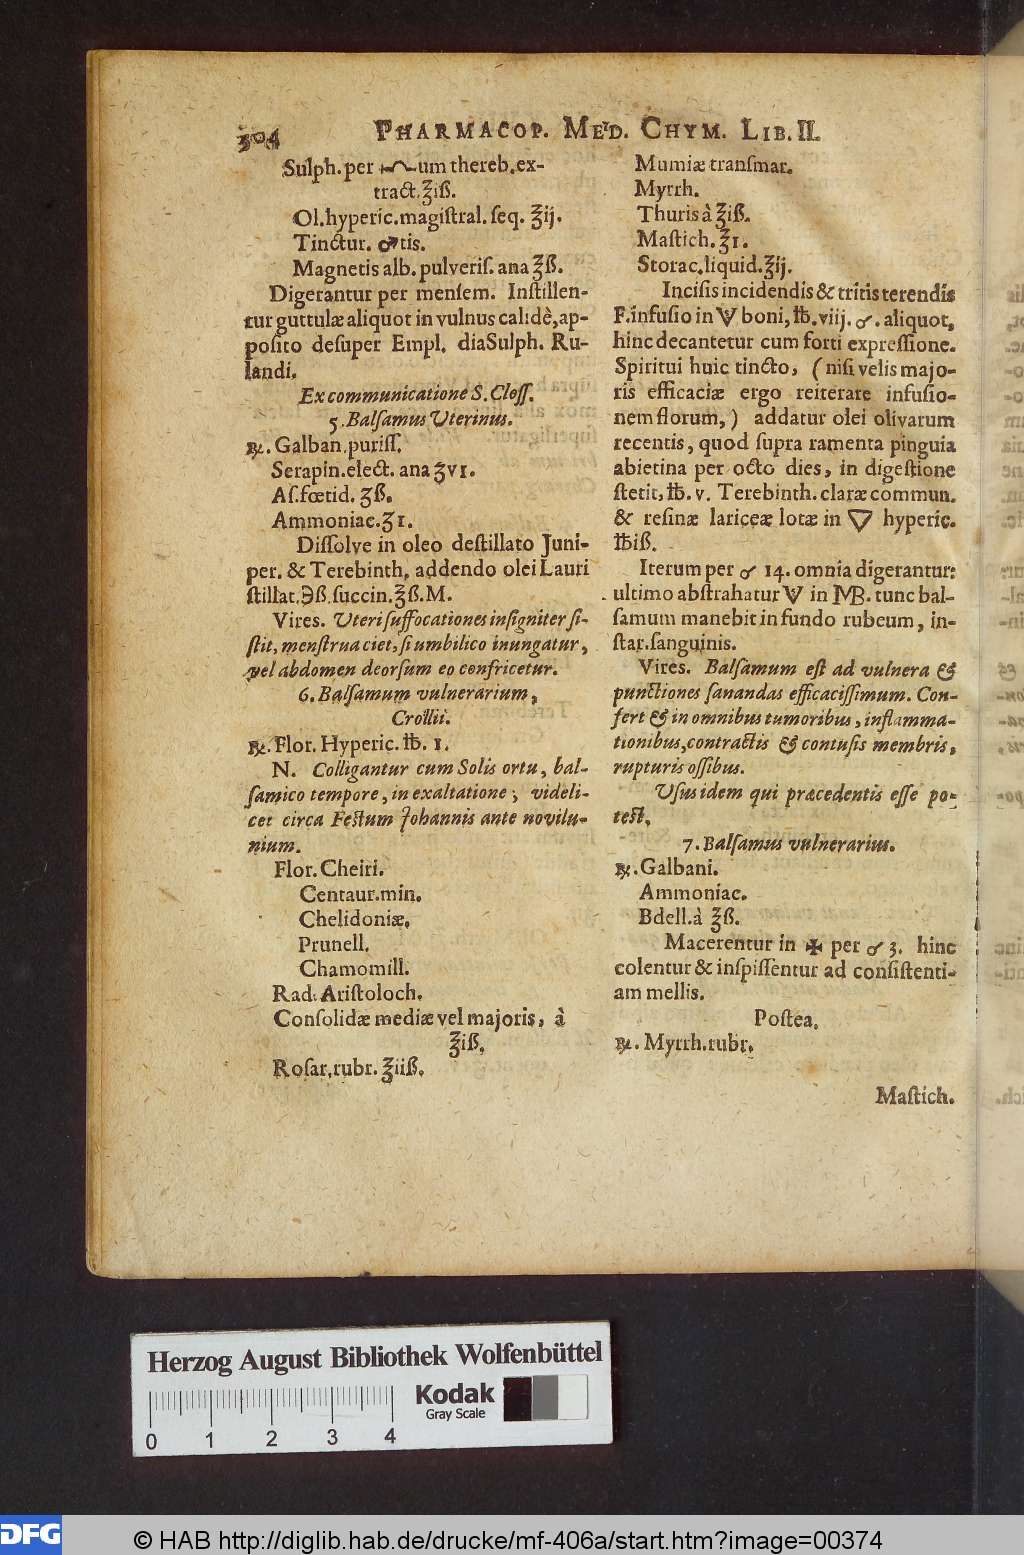 304 PHARMACOP. MED. CHYM. LIB. II.
Sulph. per um thereb. ex-
tract. ℥iß.
Ol. hyperic. magiſtral. ſeq. ℥ij.
Tinctur. ♂tis.
Magnetis alb. pulveriſ. ana ℥ß.
Digerantur per menſem. Inſtillen-
tur guttulæ aliquot in vulnus calidè, ap-
poſito deſuper Empl. diaSulph. Ru-
landi.
Ex communicatione S. Cloſſ.
5. Balſamus Uterinus.
℞. Galban. puriſſ.
Serapin. elect. ana ʒvi.
Aſ. fœtid. ʒß.
Ammoniac. ʒi.
Diſſolve in oleo deſtillato Juni-
per. & Terebinth. addendo olei Lauri
ſtillat. ℈ß. ſuccin. ℥ß. M.
Vires. Uteri ſuffocationes inſigniter ſi-
ſtit, menſtrua ciet, ſi umbilico inungatur,
vel abdomen deorſum eo confricetur.
6. Balſamum vulnerarium,
Crollii.
℞. Flor. Hyperic. ℔. 1.
N. Colligantur cum Solis ortu, bal-
ſamico tempore, in exaltatione, videli-
cet circa Feſtum Johannis ante novilu-
nium.
Flor. Cheiri.
Centaur. min.
Chelidoniæ.
Prunell.
Chamomill.
Rad. Ariſtoloch.
Conſolidæ mediæ vel majoris, à
℥iß.
Roſar. rubr. ℥iiß.
Mumiæ tranſmar.
Myrrh.
Thuris à ℥iß.
Maſtich. ℥1.
Storac. liquid. ℥ij.
Inciſis incidendis & tritis terendis
F. infuſio in V boni, ℔. viij. ♂. aliquot,
hinc decantetur cum forti expreſſione.
Spiritui huic tincto, (niſi velis majo-
ris efficaciæ ergo reiterare infuſio-
nem florum,) addatur olei olivarum
recentis, quod ſupra ramenta pinguia
abietina per octo dies, in digeſtione
ſtetit, ℔. v. Terebinth. claræ commun.
& reſinæ lariceæ lotæ in ▽ hyperic.
℔iß.
Iterum per ♂ 14. omnia digerantur:
ultimo abſtrahatur V in MB. tunc bal-
ſamum manebit in fundo rubeum, in-
ſtar. ſanguinis.
Vires. Balſamum eſt ad vulnera &
punctiones ſanandas efficaciſſimum. Con-
fert & in omnibus tumoribus, inflamma-
tionibus, contractis & contuſis membris,
rupturis oſſibus.
Uſus idem qui præcedentis eſſe po-
teſt.
7. Balſamus vulnerarius.
℞. Galbani.
Ammoniac.
Bdell. à ℥ß.
Macerentur in ✠ per ♂ 3. hinc
colentur & inſpiſſentur ad conſiſtenti-
am mellis.
Poſtea.
℞. Myrrh. rubr.
Maſtich.
Herzog August Bibliothek Wolfenbüttel
Kodak
Gray Scale
0 1 2 3 4
DFG © HAB http://diglib.hab.de/drucke/mf-406a/start.htm?image=00374